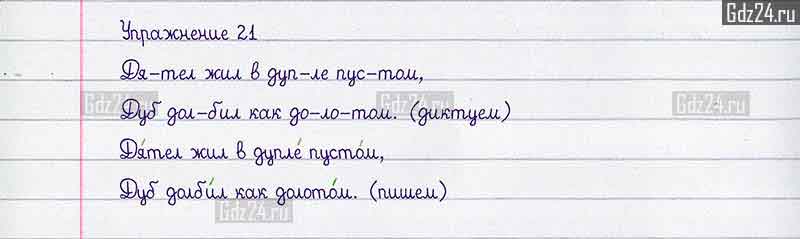 Gdz24.ru
Упражнение 21
Дя-тел жил в дуп-ле пус-том,
Gdz24.ru Gdz24.ru Gdz24.ru
Дуб дол-бил как до-ло-том. (диктуем)
Дя́тел жил в дупле́ пусто́м,
Дуб долби́л как долото́м. (пишем)
Gdz24.ru